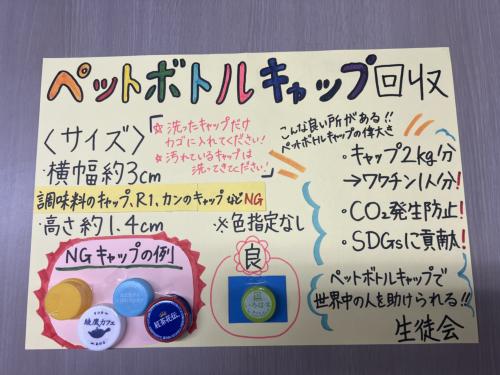 ペットボトルキャップ回収
〈サイズ〉
・横幅約3cm
「☆洗ったキャップだけ
カゴに入れてください!
☆汚れているキャップは
洗ってきてください!」
調味料のキャップ、R1、カンのキャップなどNG
・高さ約1.4cm
※色指定なし
こんな良い所がある!!
ペットボトルキャップの偉大さ
・キャップ2kg分
→ワクチン1人分!
・CO2発生防止!
・SDGsに貢献!
ペットボトルキャップで
世界中の人を助けられる!!
生徒会
NGキャップの例
綾鷹カフェ
紅茶花伝
良
いろはす